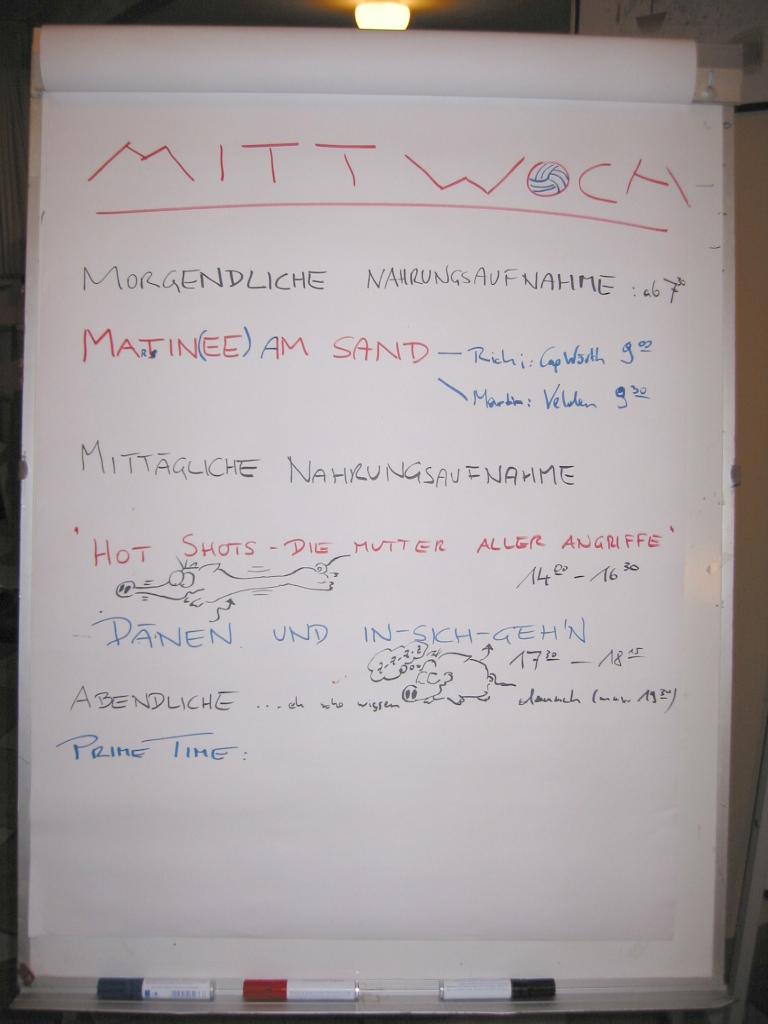 MITTWOCH
MORGENDLICHE NAHRUNGSAUFNAHME : ab 7³⁰
MATIN(EE) AM SAND – Richi: Cap Wörth 9⁰⁰
Martin: Velden 9³⁰
MITTÄGLICHE NAHRUNGSAUFNAHME
"HOT SHOTS - DIE MUTTER ALLER ANGRIFFE"
14⁰⁰ – 16³⁰
DÄNEN UND IN-SICH-GEH'N
z.z.z.z
17³⁰ – 18¹⁵
ABENDLICHE ... eh scho wissen danach (max. 19³⁰)
PRIME TIME: